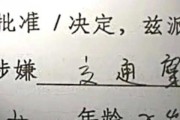 批准/决定,兹派
涉嫌 交通肇
年龄